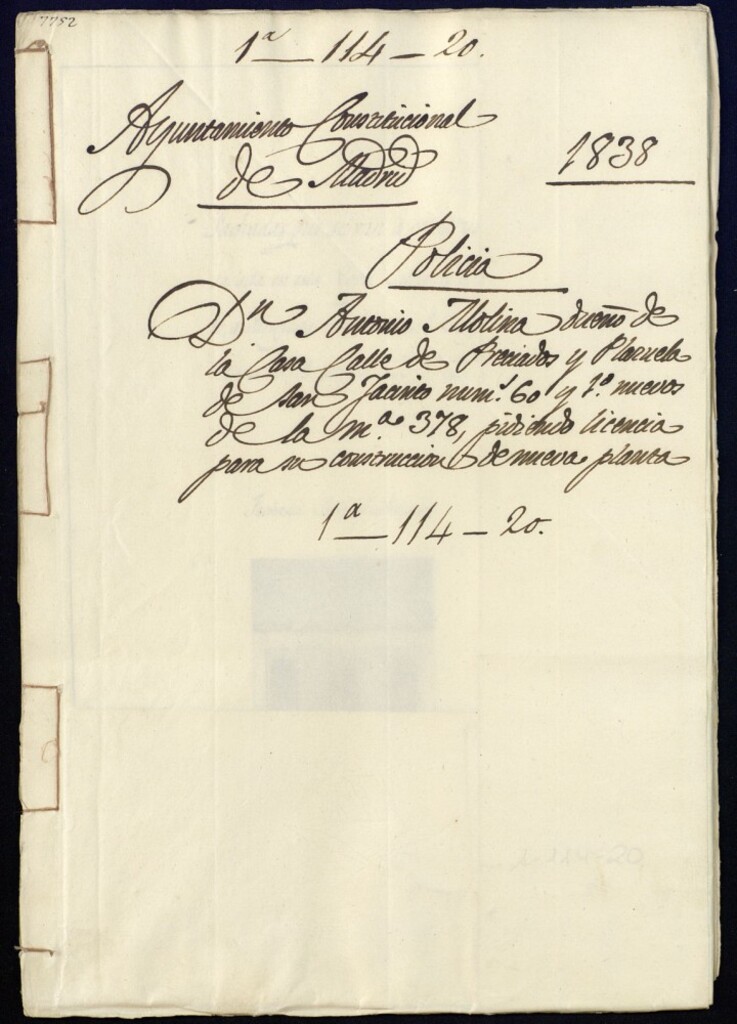 7752
1ª - 114 - 20.
Ayuntamiento Constitucional
de Madrid
1838
Policia
Dn Antonio Molina dueño de
la Casa Calle de Preciados y Plazuela
de San Jacinto num.s 60 y 1º. nuevos
de la m.a 378, pidiendo licencia
para su construccion de nueva planta
1ª - 114 - 20.